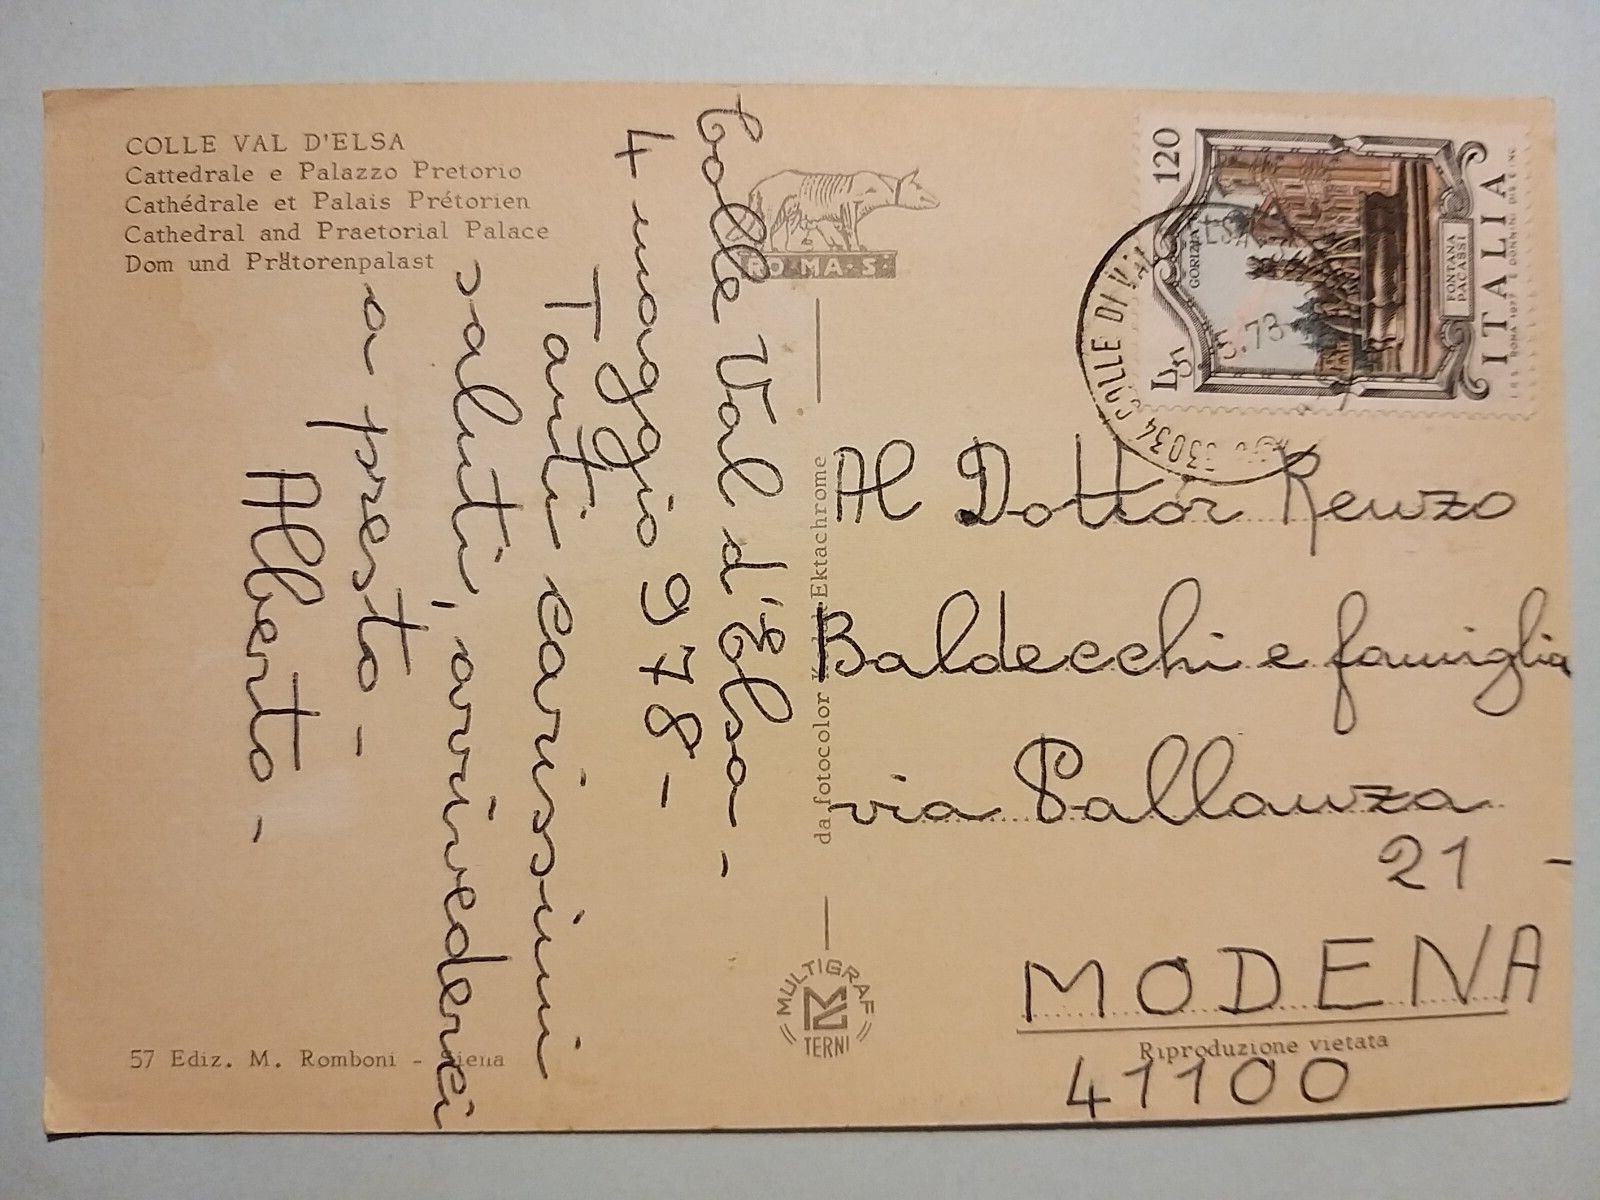 COLLE VAL D'ELSA
Cattedrale e Palazzo Pretorio
Cathédrale et Palais Prétorien
Cathedral and Praetorial Palace
Dom und Prätorenpalast
Colle Val d'Elsa -
4 maggio 978 -
Tanti carissimi
saluti, arrivederci
a presto -
Alberto -
57 Ediz. M. Romboni - Siena
ROMA·S·
da fotocolor Kodak Ektachrome
MULTIGRAF
TERNI
L. 120
GORIZIA
FONTANA
PACASSI
ITALIA
53034 COLLE DI VAL ELSA
5.78
Al Dottor Renzo
Baldecchi e famiglia
via Pallanza
21 -
MODENA
Riproduzione vietata
41100